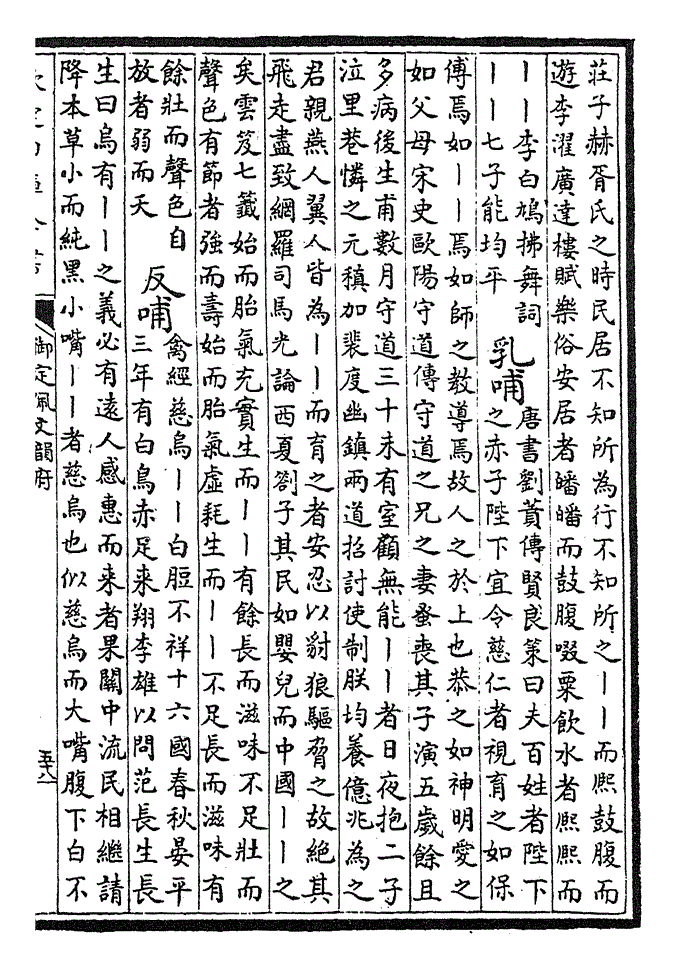 莊子赫胥氏之時民居不知所為行不知所之丨丨而熈鼓腹而
遊李濯廣達樓賦樂俗安居者皤皤而鼓腹啜粟飲水者熈熈而
丨丨李白鳩拂舞詞
丨丨七子能均平
乳哺
唐書劉蕡傳賢良策曰夫百姓者陛下
之赤子陛下宜令慈仁者視育之如保
傅焉如丨丨焉如師之教導焉故人之於上也恭之如神明愛之
如父母宋史歐陽守道傳守道之兄之妻蚤喪其子演五歲餘且
多病後生甫數月守道三十未有室顧無能丨丨者日夜抱二子
泣里巷憐之元稹加裴度幽鎮兩道招討使制朕均養億兆為之
君親燕人翼人皆為丨丨而育之者安忍以豺狼驅脅之故絶其
飛走盡致網羅司馬光論西夏劄子其民如嬰兒而中國丨丨之
矣雲笈七籤始而胎氣充實生而丨丨有餘長而滋味不足壯而
聲色有節者強而壽始而胎氣虛耗生而丨丨不足長而滋味有
餘壯而聲色自
放者弱而夭
反哺
禽經慈烏丨丨白脰不祥十六國春秋晏平
三年有白烏赤足来翔李雄以問范長生長
生曰烏有丨丨之義必有遠人感惠而来者果關中流民相繼請
降本草小而純黑小嘴丨丨者慈烏也似慈烏而大嘴腹下白不
御定佩文韻府